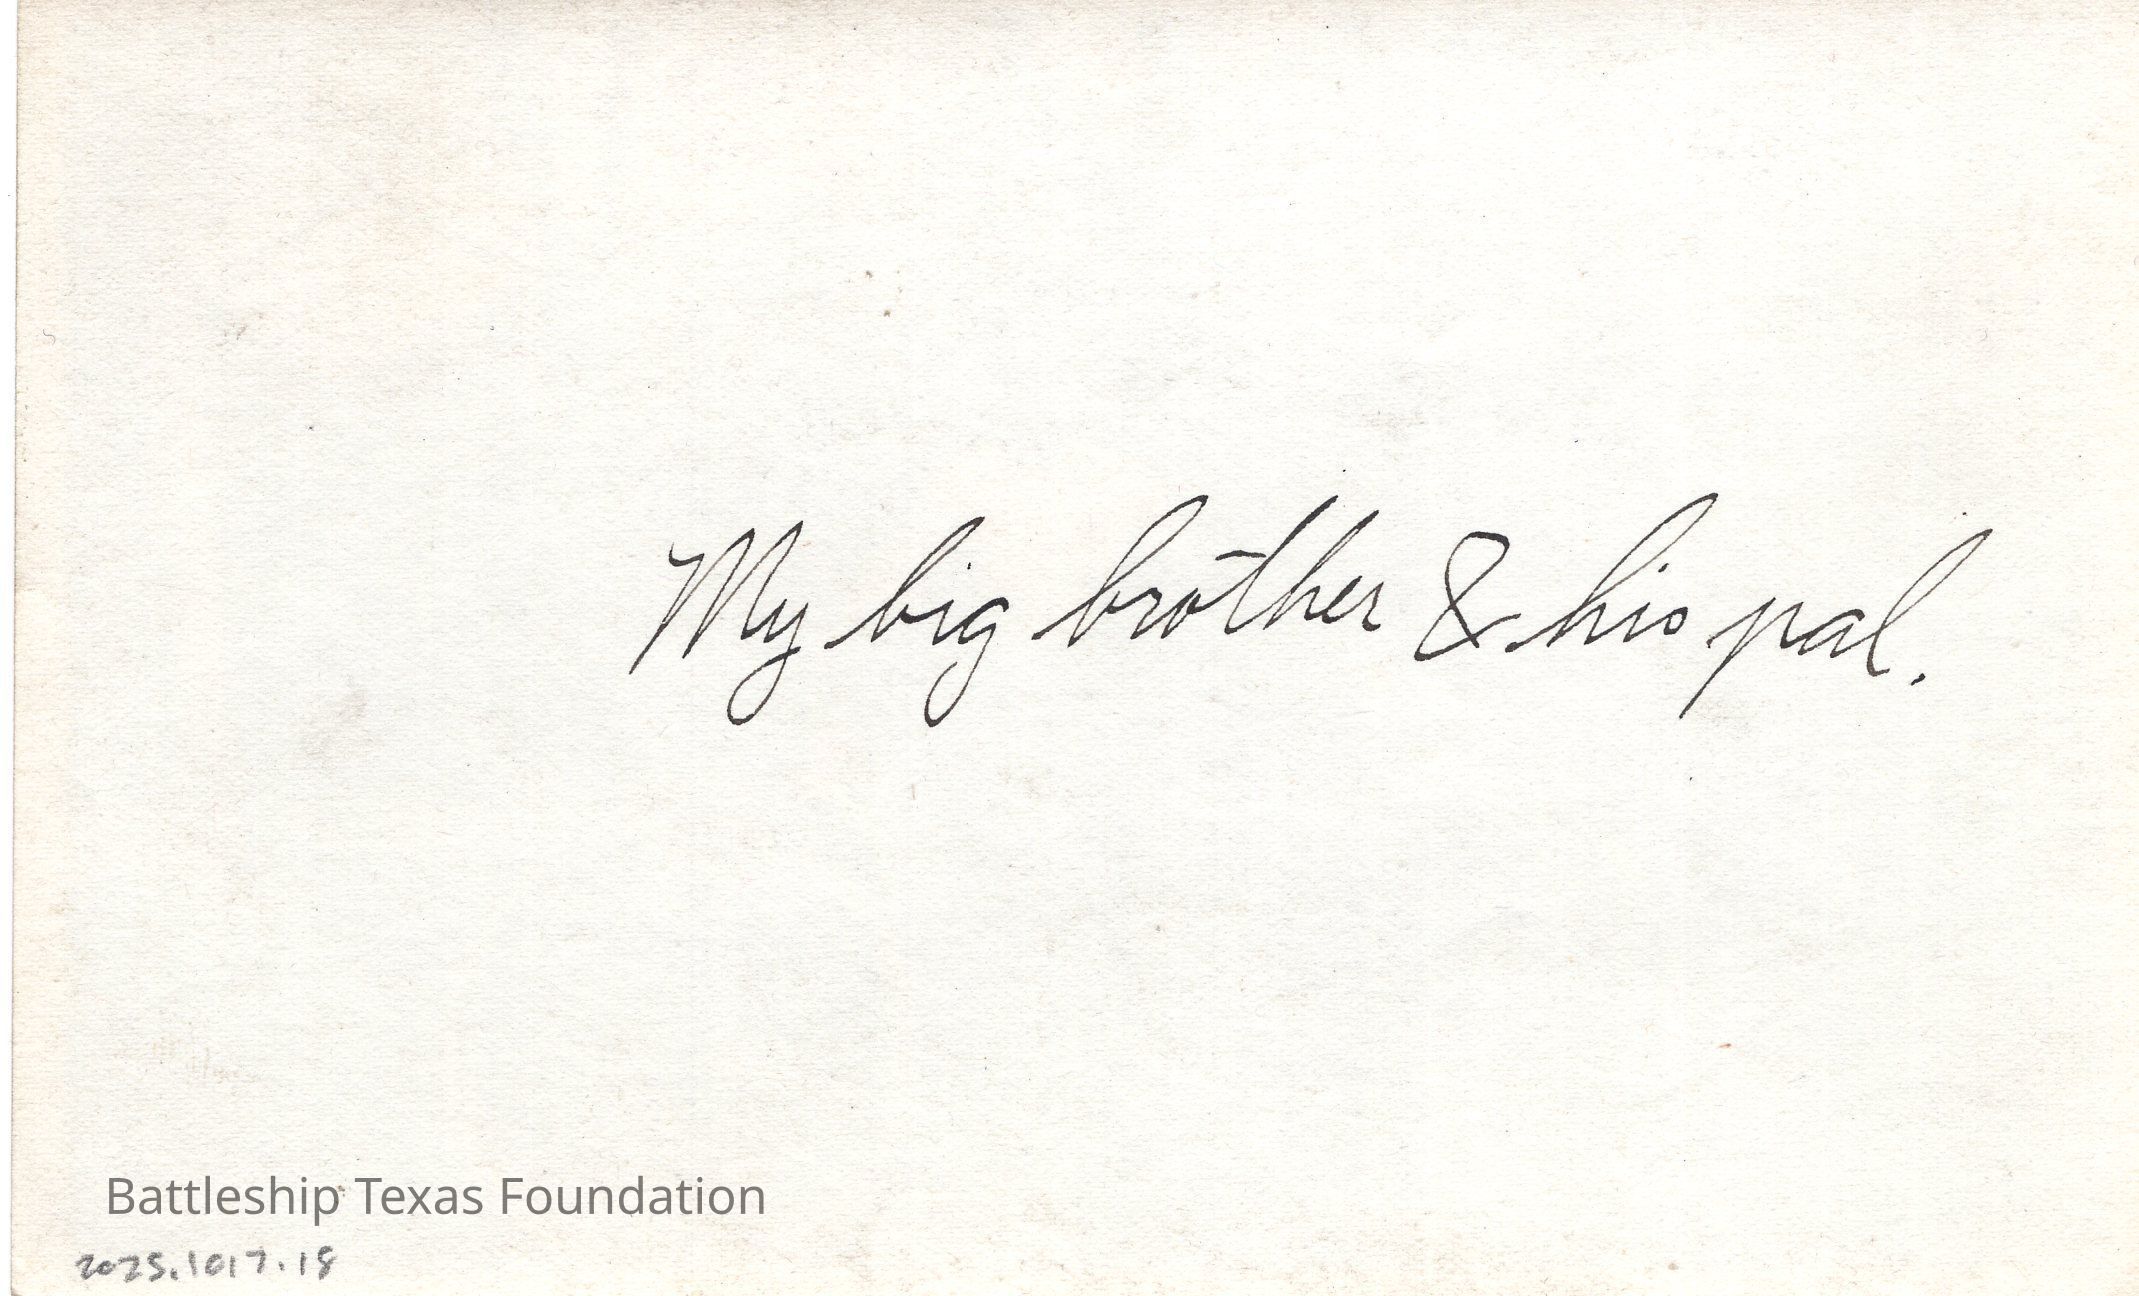 My big brother & his pal.
Battleship Texas Foundation
2025.1017.18